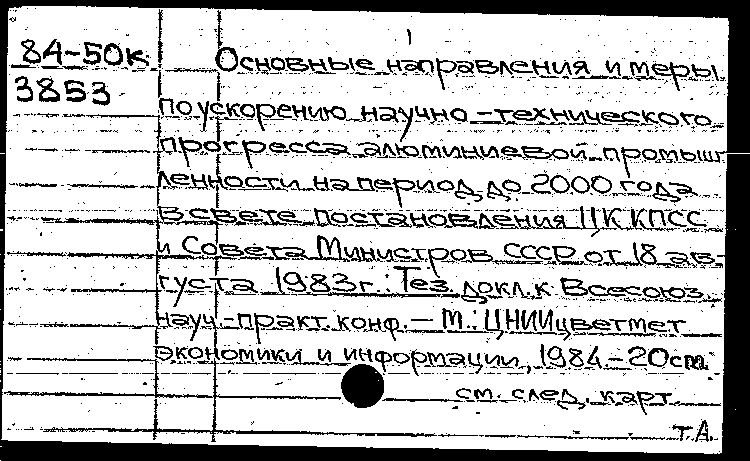 84-50к Основные направления и меры
3853
по ускорению научно-технического
прогресса алюминиевой промыш
ленности на период до 2000 года
в свете постановления ЦК КПСС
и Совета Министров СССР от 18 ав-
густа 1983г.: Тез. докл. к Всесоюз.
науч.-практ. конф. — М.: ЦНИИцветмет
экономики и информации, 1984 - 20 ст
см. след. карт.
Т.А.